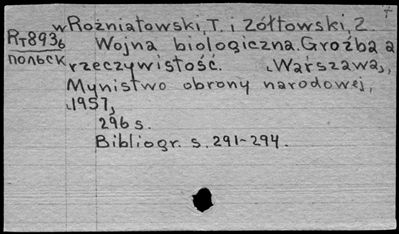 w Rożniatowski, T. i Zółtowski, Z.
Rт893б Wojna biologiczna. Groźba a
польск rzeczywistość. Warszawa,
Mynistwo obrony narodowej,
1957,
296 s.
Bibliogr. s. 291-294.